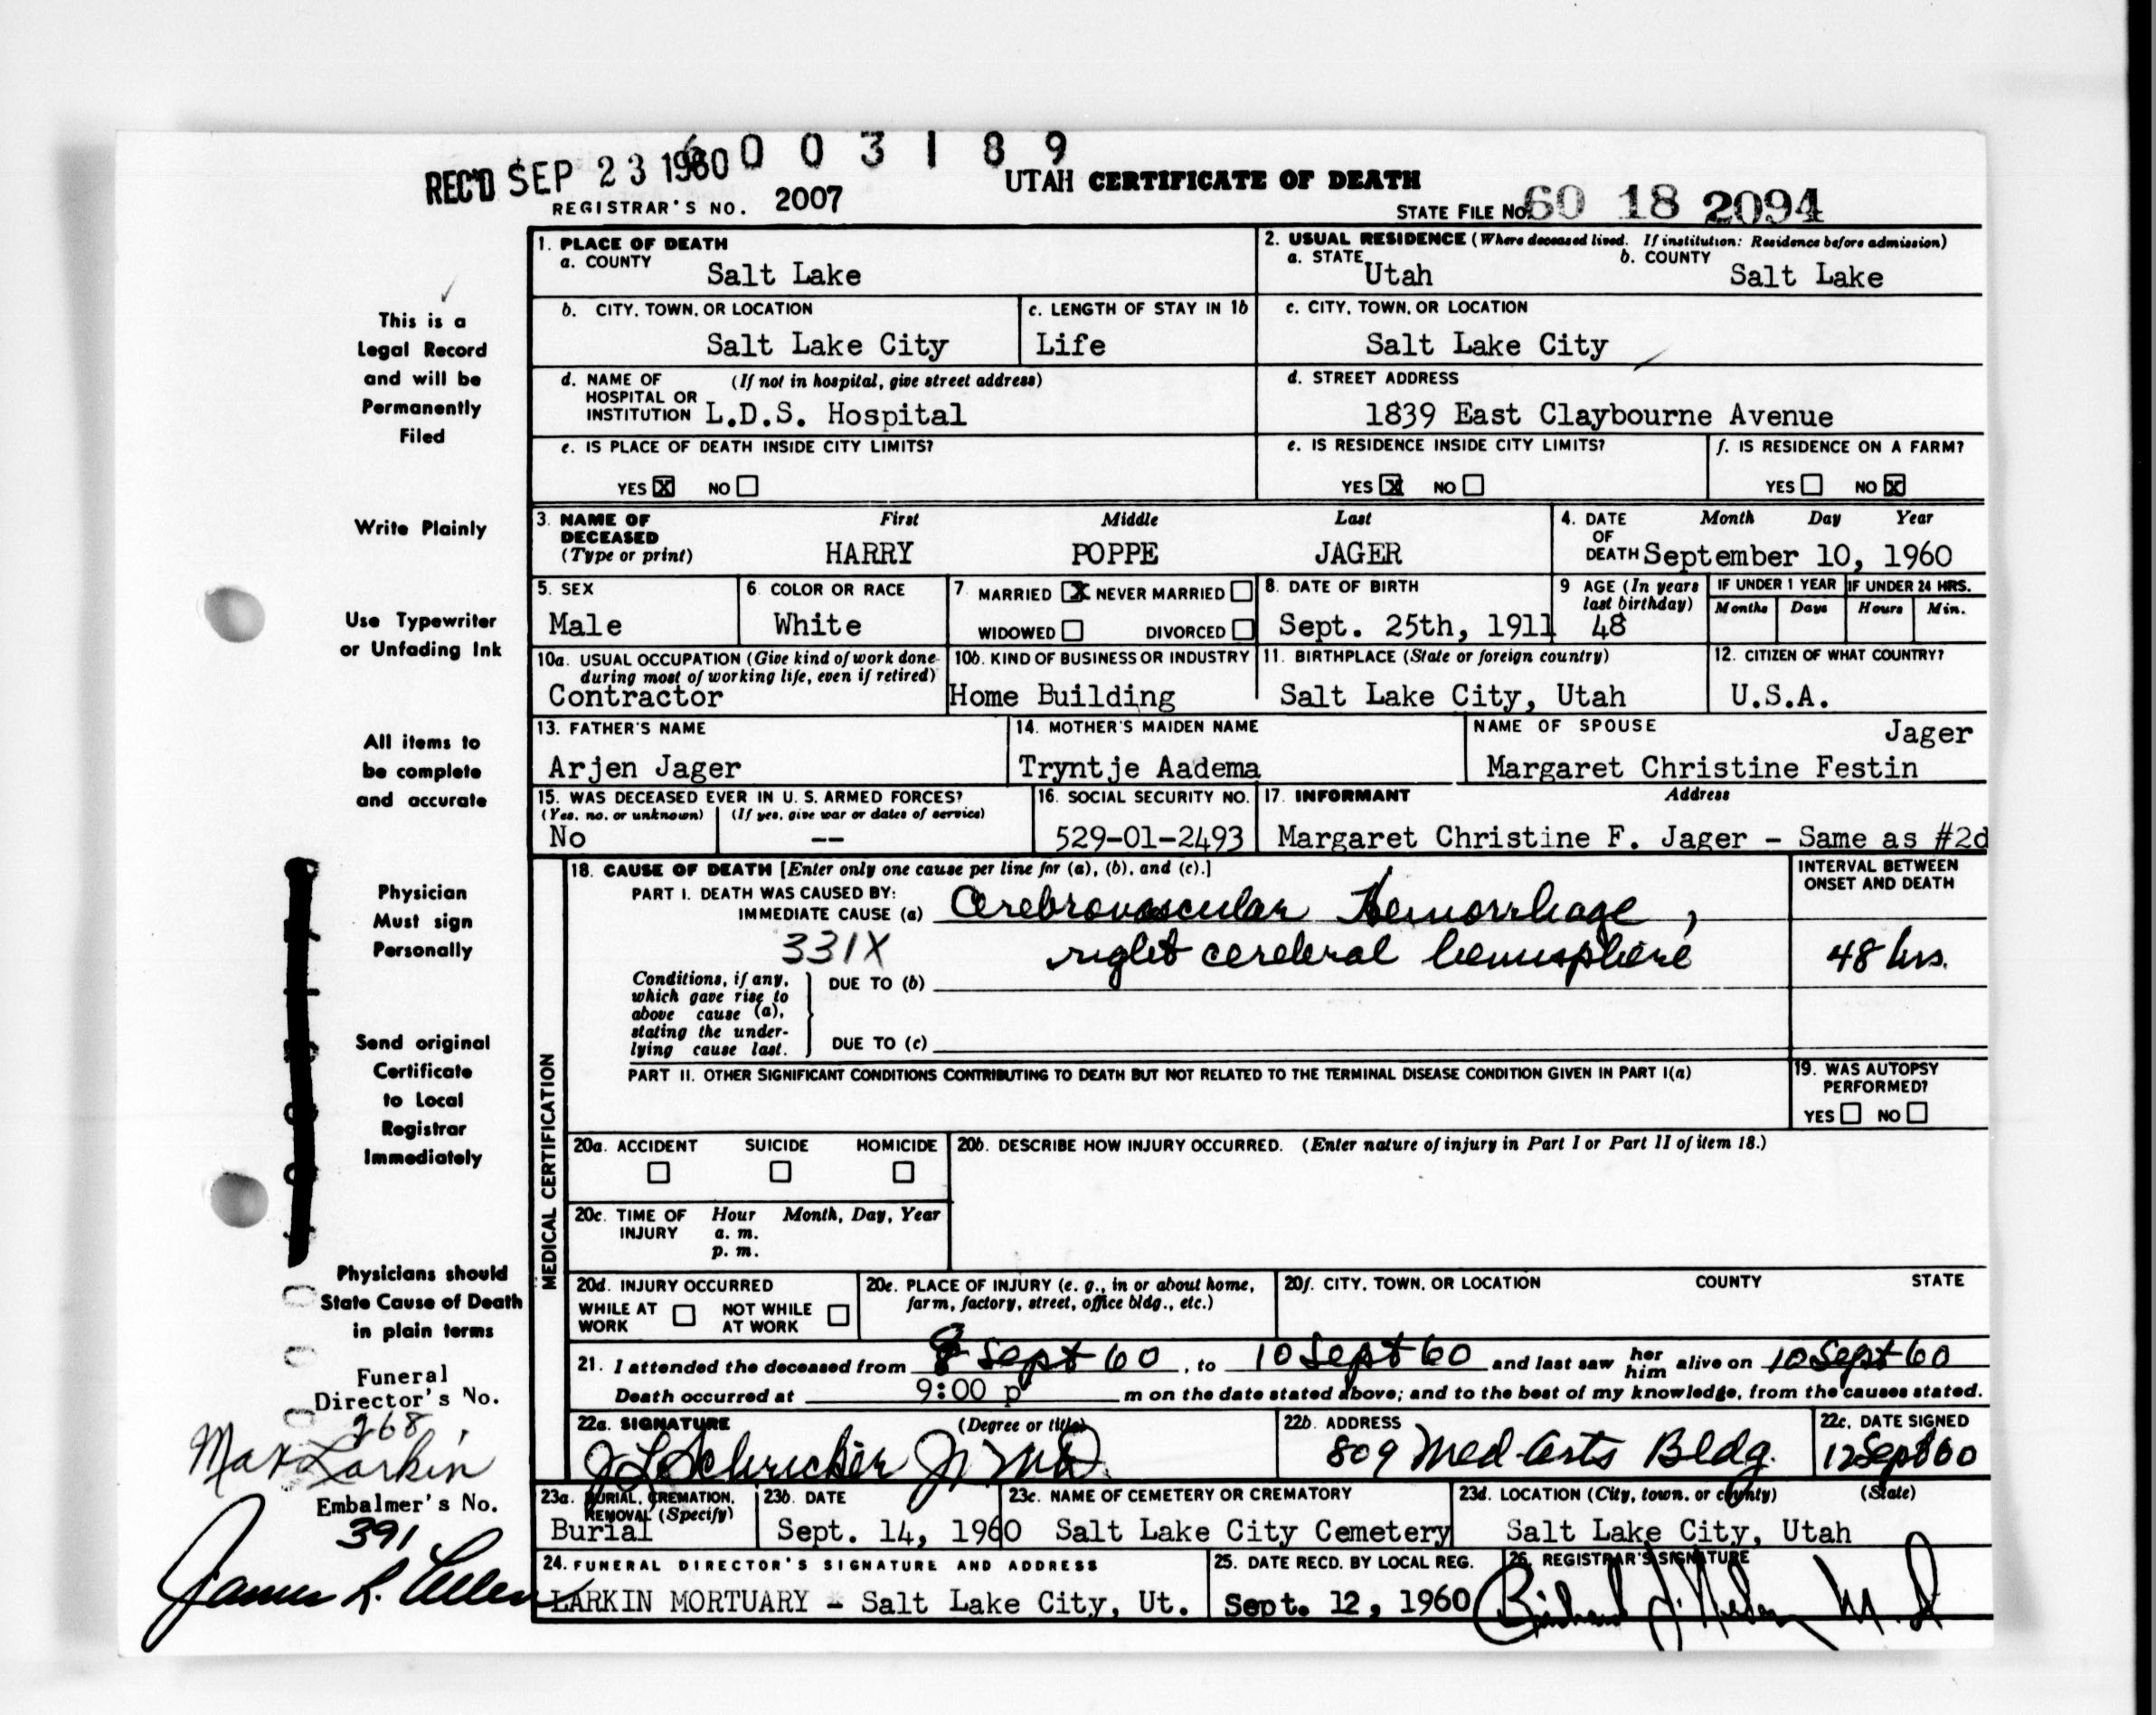 6 0 0 3 1 8 9
REC'D SEP 23 1960
UTAH CERTIFICATE OF DEATH
REGISTRAR'S NO. 2007
STATE FILE NO. 60 18 2094
This is a
Legal Record
and will be
Permanently
Filed
Write Plainly
Use Typewriter
or Unfading Ink
All items to
be complete
and accurate
Physician
Must sign
Personally
Send original
Certificate
to Local
Registrar
Immediately
Physicians should
State Cause of Death
in plain terms
Funeral
Director's No.
268
Max Larkin
Embalmer's No.
391
1. PLACE OF DEATH
a. COUNTY
Salt Lake
2. USUAL RESIDENCE (Where deceased lived. If institution: Residence before admission)
a. STATE Utah
b. COUNTY Salt Lake
b. CITY, TOWN, OR LOCATION
Salt Lake City
c. LENGTH OF STAY IN 1b
Life
c. CITY, TOWN, OR LOCATION
Salt Lake City
d. NAME OF (If not in hospital, give street address)
HOSPITAL OR
INSTITUTION L.D.S. Hospital
d. STREET ADDRESS
1839 East Claybourne Avenue
e. IS PLACE OF DEATH INSIDE CITY LIMITS?
YES X NO
e. IS RESIDENCE INSIDE CITY LIMITS?
YES X NO
f. IS RESIDENCE ON A FARM?
YES NO X
3. NAME OF
DECEASED
(Type or print)
First Middle Last
HARRY POPPE JAGER
4. DATE Month Day Year
OF
DEATH September 10, 1960
5. SEX
Male
6. COLOR OR RACE
White
7. MARRIED X NEVER MARRIED
WIDOWED DIVORCED
8. DATE OF BIRTH
Sept. 25th, 1911
9 AGE (In years
last birthday)
48
IF UNDER 1 YEAR
Months Days
IF UNDER 24 HRS.
Hours Min.
10a. USUAL OCCUPATION (Give kind of work done
during most of working life, even if retired)
Contractor
10b. KIND OF BUSINESS OR INDUSTRY
Home Building
11. BIRTHPLACE (State or foreign country)
Salt Lake City, Utah
12. CITIZEN OF WHAT COUNTRY?
U.S.A.
13. FATHER'S NAME
Arjen Jager
14. MOTHER'S MAIDEN NAME
Tryntje Aadema
NAME OF SPOUSE
Jager
Margaret Christine Festin
15. WAS DECEASED EVER IN U. S. ARMED FORCES?
(Yes, no, or unknown) (If yes, give war or dates of service)
No --
16. SOCIAL SECURITY NO.
529-01-2493
17. INFORMANT Address
Margaret Christine F. Jager - Same as #2d
MEDICAL CERTIFICATION
18. CAUSE OF DEATH [Enter only one cause per line for (a), (b), and (c).]
INTERVAL BETWEEN
ONSET AND DEATH
PART I. DEATH WAS CAUSED BY:
IMMEDIATE CAUSE (a) Cerebrovascular Hemorrhage,
331X right cerebral hemisphere 48 hrs.
Conditions, if any,
which gave rise to
above cause (a),
stating the under-
lying cause last.
DUE TO (b)
DUE TO (c)
PART II. OTHER SIGNIFICANT CONDITIONS CONTRIBUTING TO DEATH BUT NOT RELATED TO THE TERMINAL DISEASE CONDITION GIVEN IN PART I(a)
19. WAS AUTOPSY
PERFORMED?
YES NO
20a. ACCIDENT SUICIDE HOMICIDE
20b. DESCRIBE HOW INJURY OCCURRED. (Enter nature of injury in Part I or Part II of item 18.)
20c. TIME OF Hour Month, Day, Year
INJURY a. m.
p. m.
20d. INJURY OCCURRED
WHILE AT NOT WHILE
WORK AT WORK
20e. PLACE OF INJURY (e. g., in or about home,
farm, factory, street, office bldg., etc.)
20f. CITY, TOWN, OR LOCATION COUNTY STATE
21. I attended the deceased from 8 Sept 60, to 10 Sept 60 and last saw her him alive on 10 Sept 60
Death occurred at 9:00 p m on the date stated above; and to the best of my knowledge, from the causes stated.
22a. SIGNATURE (Degree or title)
J L Schricker Jr MD
22b. ADDRESS
809 Med-Arts Bldg.
22c. DATE SIGNED
12 Sept 60
23a. BURIAL, CREMATION,
REMOVAL (Specify)
Burial
23b. DATE
Sept. 14, 1960
23c. NAME OF CEMETERY OR CREMATORY
Salt Lake City Cemetery
23d. LOCATION (City, town, or county) (State)
Salt Lake City, Utah
24. FUNERAL DIRECTOR'S SIGNATURE AND ADDRESS
LARKIN MORTUARY - Salt Lake City, Ut.
25. DATE RECD. BY LOCAL REG.
Sept. 12, 1960
26. REGISTRAR'S SIGNATURE